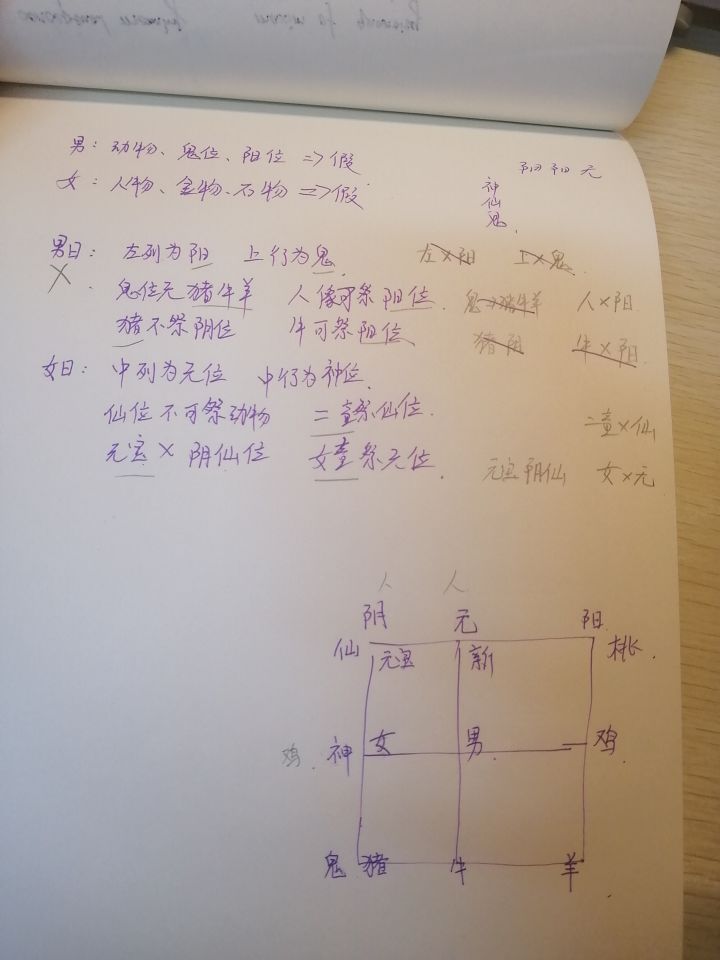 男：动物、鬼位、阳位 => 假
女：人物、金物、石物 => 假
阴 阳 元
神
仙
鬼
男曰：左列为阳 上行为鬼 左×阳 上×鬼
X 鬼位无猪牛羊 人像可祭阳位 鬼→猪牛羊 人×阳
猪不祭阴位 牛可祭阳位 猪阴 牛×阳
女曰：中列为元位 中行为神位
仙位不可祭动物 二童祭仙位 二童×仙
元宝 × 阴仙位 女童祭元位 元宝阴仙 女×元
人 人
阴 元 阳
仙 元宝 新 桃
鸡 神 女 男 鸡
鬼 猪 牛 羊